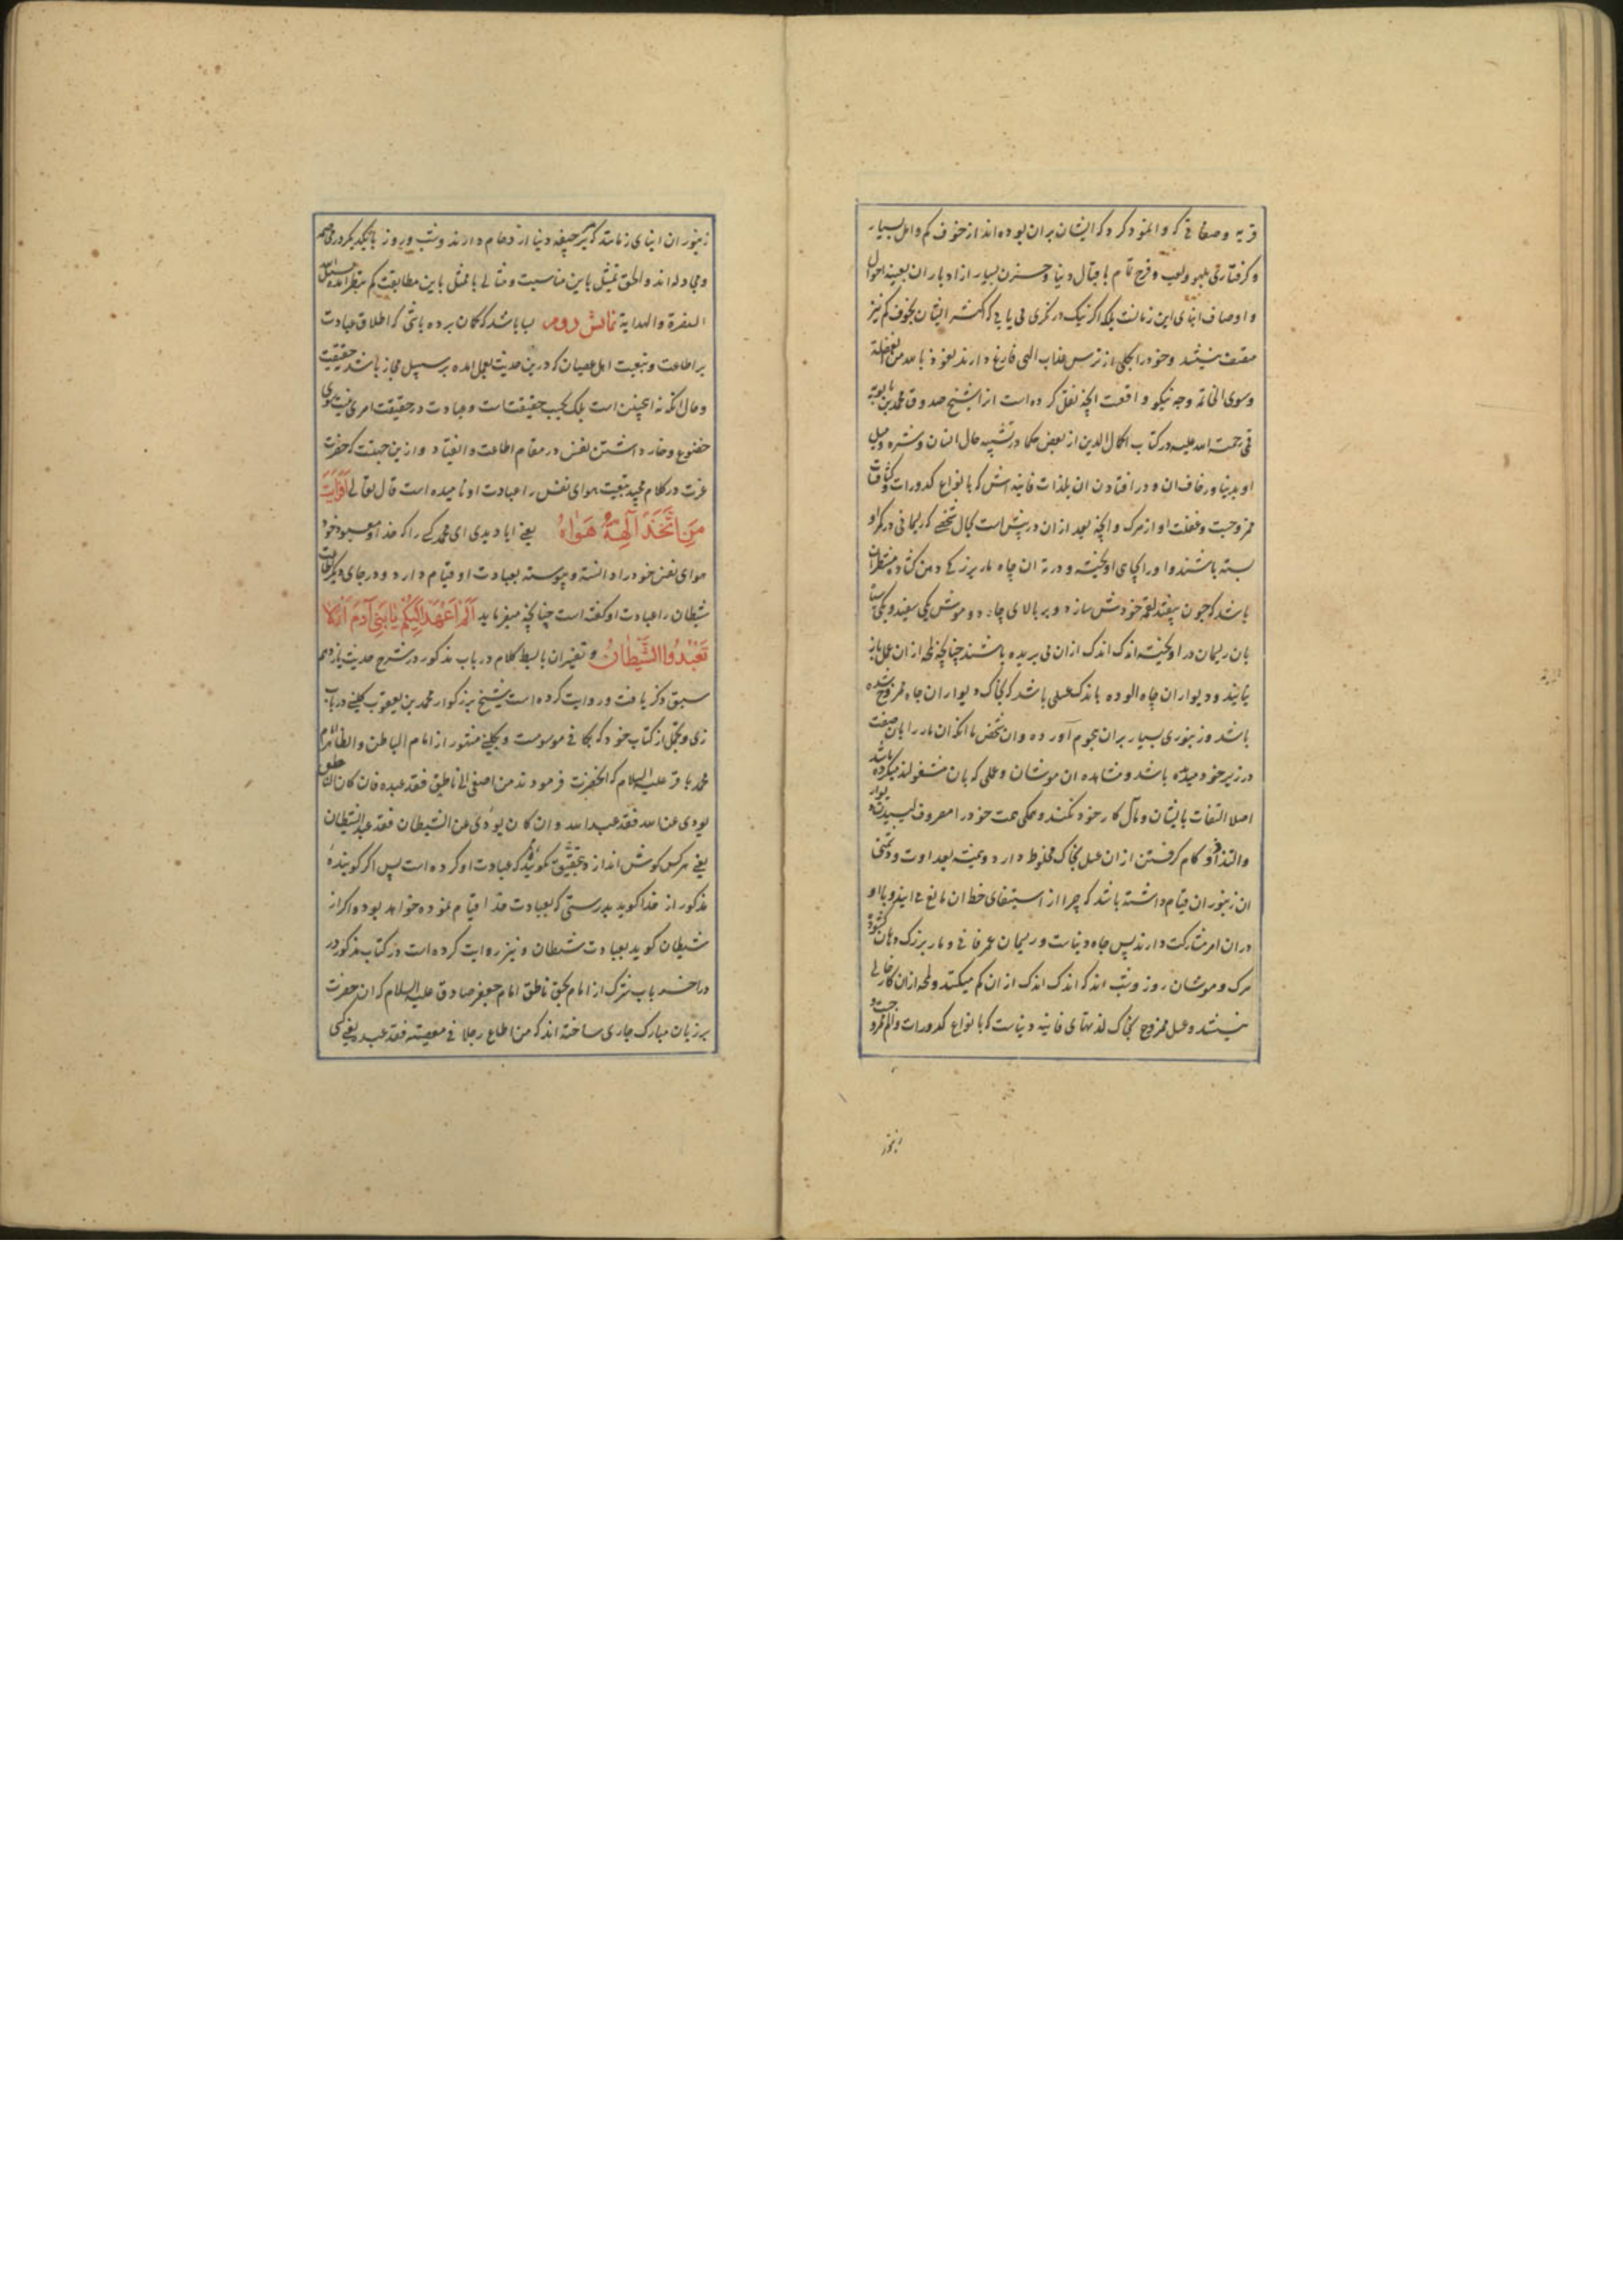 قریه و صفاتی که وانمود کرد که ایشان بران بوده‌اند از خوف کم و امل بسیار
و کرفتاری بلهو ولعب و فرح تمام باقبال دنیا و حزن بسیار از ادبار ان بعینه احوال
و اوصاف ابنای این زمانست بلکه اکر نیک در نکری می یابی که اکثر ایشان بخوف کم نیز
متصف نیستند و خود را بکلی از ترس عذاب الهی فارغ دارند نعوذ بالله من الغفلة
وسوی الخاتمه وجه نیکو واقعست انچه نقل کرده است از شیخ صدوق محمد بن بابویه
قمی رحمت الله علیه در کتاب اکمال الدین از بعض حکما در تشبیه حال انسان و شره و میل
او بدنیا و زخارف ان و در افتادن ان بلذات فانیه اش که بانواع کدورات و کثافات
ممزوجست و غفلت او از مرک و انچه بعد از ان در پیش است بحال شخصی که ریسمانی در کمر او
بسته باشند و او را بچاهی اویخته و در ته ان چاه مار بزرکی دهن کشاده منتظر ان
باشد که چون بیفتد لقمه خودش سازد و بر بالای چاه دو موش یکی سفید و یکی سیاه
بان ریسمان در اویخته اندک اندک ازان می بریده باشند چنانچه لحظه از ان عمل باز
نمانند و دیواران چاه الوده باندک عسلی باشد که بخاک دیواران چاه ممزوج شده
باشد و زنبوری بسیار بران هجوم آورده و ان شخص با انکه ان مار را بان صفت
در زیر خود میدیده باشد و مشاهده ان موشان و عملی که بان مشغولند میکرده باشد
اصلا التفات بایشان و مآل کار خود نکند و همکی همت خود را مصروف لیسیدن دیوار
والتذاذ و کام کرفتن از ان عسل بخاک مخلوط دارد و همیشه بعداوت و دشمنی
ان زنبوران قیام داشته باشد که چرا از استیفای حظ ان مانع می ایند و با او
دران امر مشارکت دارند پس چاه دنیاست و ریسمان عمر فانی و مار بزرک دهان کشوده
مرک و موشان روز و شب اند که اندک اندک از ان کم میکنند و لحظه ازان کار خالی
نیستند و عسل ممزوج بخاک لذتهای فانیه دنیاست که بانواع کدورات والم ممزوجست و
زنبور
زنبوران ابنای زمانند که بر جیفه دنیا ازدحام دارند و شب و روز با یکدیکر در مخاصمه
و مجادله اند والحق تمثیل باین مناسبت و مثالی با ممثل باین مطابقت کم بنظر امده نسئل الله
البصرة والهدایة نمایش دوم بسا باشد که کمان برده باشی که اطلاق عبادت
بر اطاعت و تبعیت اهل عصیان که درین حدیث بعمل امده بر سبیل مجاز باشد نه حقیقت
وحال انکه نه اینچنین است بلکه بحسب حقیقتست و عبادت در حقیقت امری نیست سوی
خضوع و خوار داشتن نفس در مقام اطاعت و انقیاد و ازین جهتست که حضرت
عزت در کلام مجید تبعیت هوای نفس را عبادت او نامیده است قال تعالی افرایت
مَنِ اتَّخَذَ آلِهَهُ هَوَاهُ یعنی ایا دیدی ای محمد کسی را که خدا و معبود خود
هوای نفس خود را دانسته و پیوسته بعبادت او قیام دارد و در جای دیکر اطاعت
شیطان را عبادت او کفته است چنانچه میفرماید أَلَمْ أَعْهَدْ إِلَيْكُمْ يَا بَنِي آدَمَ أَنْ لَا
تَعْبُدُوا الشَّيْطَانَ و تفسیر ان بابسط کلام در باب مذکور در شرح حدیث یازدهم
سبق ذکر یافت و روایت کرده است شیخ بزرکوار محمد بن یعقوب کلینی در باب
زی و تجمل از کتاب خود که بکافی موسومست و بکلینی مشهور از امام الباطن والظاهر امام
محمد باقر علیه السلام که انحضرت فرمودند من اصغی الی ناطق فقد عبده فان کان الناطق
یودی عن الله فقد عبد الله وان کان یودی عن الشیطان فقد عبد الشیطان
یعنی هر کس کوش اندازد بحقیق کوینده که عبادت او کرده است پس اکر کوینده
مذکور از خدا کوید بدرستی که بعبادت خدا قیام نموده خواهد بود و اکر از
شیطان کوید بعبادت شیطان و نیز روایت کرده است در کتاب مذکور در
در اخر باب شرک از امام بحق ناطق امام جعفر صادق علیه السلام که ان حضرت
بر زبان مبارک جاری ساخته اند که من اطاع رجلا فی معصیته فقد عبده یعنی کسی